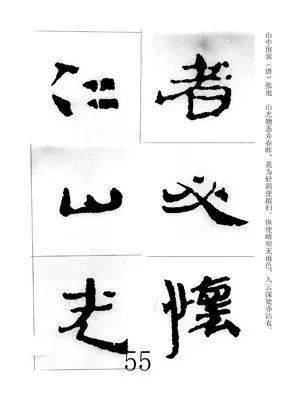 山中留客（唐）张旭 山光物态弄春晖，莫为轻阴便拟归，纵使晴明无雨色，入云深处亦沾衣。
者必懷
仁山光
55